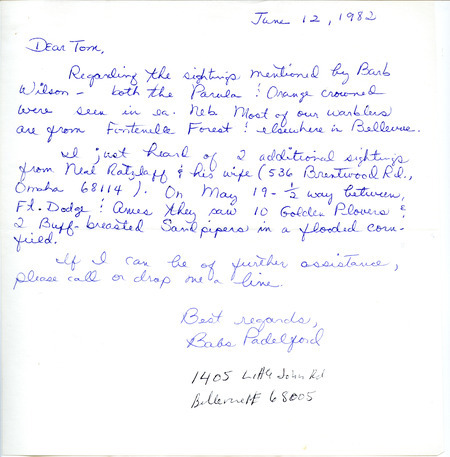 June 12, 1982
Dear Tom,
Regarding the sightings mentioned by Barb
Wilson - both the Parula & Orange crowned
were seen in ea. Neb. Most of our warblers
are from Fontenelle Forest & elsewhere in Bellevue.
I just heard of 2 additional sightings
from Neal Ratzlaff & his wife (536 Brentwood Rd.,
Omaha 68114). On May 19 - ½ way between
Ft. Dodge & Ames they saw 10 Golden Plovers &
2 Buff-breasted Sandpipers in a flooded corn-
field.
If I can be of further assistance,
please call or drop me a line.
Best regards,
Babs Padelford
1405 Little John Rd
68005